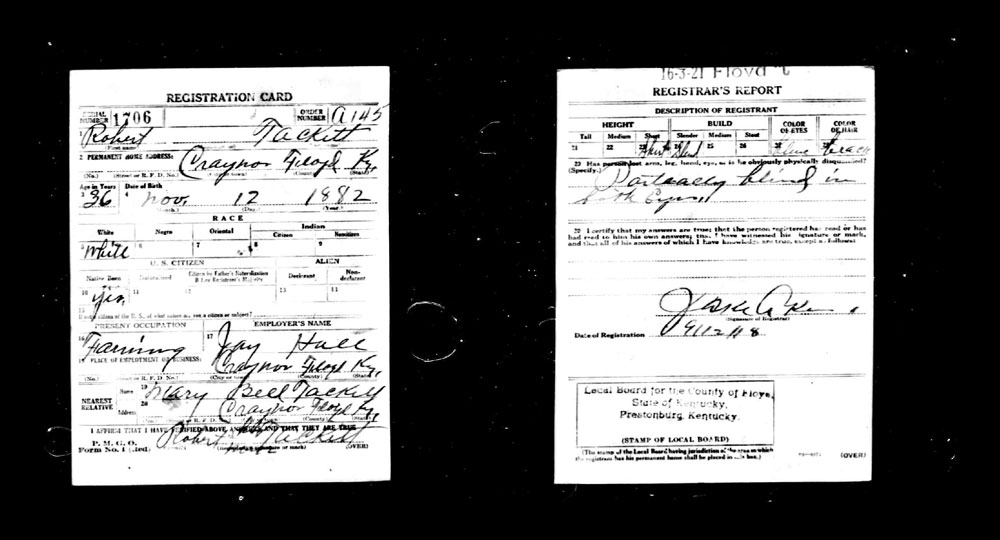 REGISTRATION CARD
SERIAL NUMBER 1706 ORDER NUMBER A145
1 Robert Tackitt
(First name)
2 PERMANENT HOME ADDRESS: Craynor Floyd Ky.
(No.) (Street or R. F. D. No.) (County) (State)
Age in Years Date of Birth
3 36 4 Nov. 12 1882
(Month.) (Day.) (Year.)
RACE
White Negro Oriental Indian
Citizen Noncitizen
5 White 6 7 8 9
U. S. CITIZEN ALIEN
Native Born Naturalized Citizen by Father's Naturalization Before Registrant's Majority Declarant Non-declarant
10 yes 11 12 13 14
15 If not a citizen of the U. S., of what nation are you a citizen or subject?
PRESENT OCCUPATION EMPLOYER'S NAME
16 Farming 17 Jay Hall
18 PLACE OF EMPLOYMENT OR BUSINESS: Craynor Floyd Ky.
(No.) (Street or R. F. D. No.) (City or town) (County) (State)
NEAREST RELATIVE Name 19 Mary Bell Tackitt
Address 20 Craynor Floyd Ky.
I AFFIRM THAT I HAVE VERIFIED ABOVE ANSWERS AND THAT THEY ARE TRUE
P. M. G. O.
Form No. 1 (Red) Robert Tackitt
(Registrant's signature or mark) (OVER)
16-3-21 Floyd C
REGISTRAR'S REPORT
DESCRIPTION OF REGISTRANT
HEIGHT BUILD COLOR OF EYES COLOR OF HAIR
Tall Medium Short Slender Medium Stout
21 22 23 Short 24 25 26 27 Blue 28 Black
29 Has person lost arm, leg, hand, eye, or is he obviously physically disqualified?
(Specify.) Partially blind in
both Eyes.
30 I certify that my answers are true; that the person registered has read or has
had read to him his own answers; that I have witnessed his signature or mark,
and that all of his answers of which I have knowledge are true, except as follows:
(Signature of Registrar)
Date of Registration 9/12/18
Local Board for the County of Floyd,
State of Kentucky,
Prestonburg, Kentucky.
(STAMP OF LOCAL BOARD)
(The stamp of the Local Board having jurisdiction of the area in which
the registrant has his permanent home shall be placed in this box.)
(OVER)